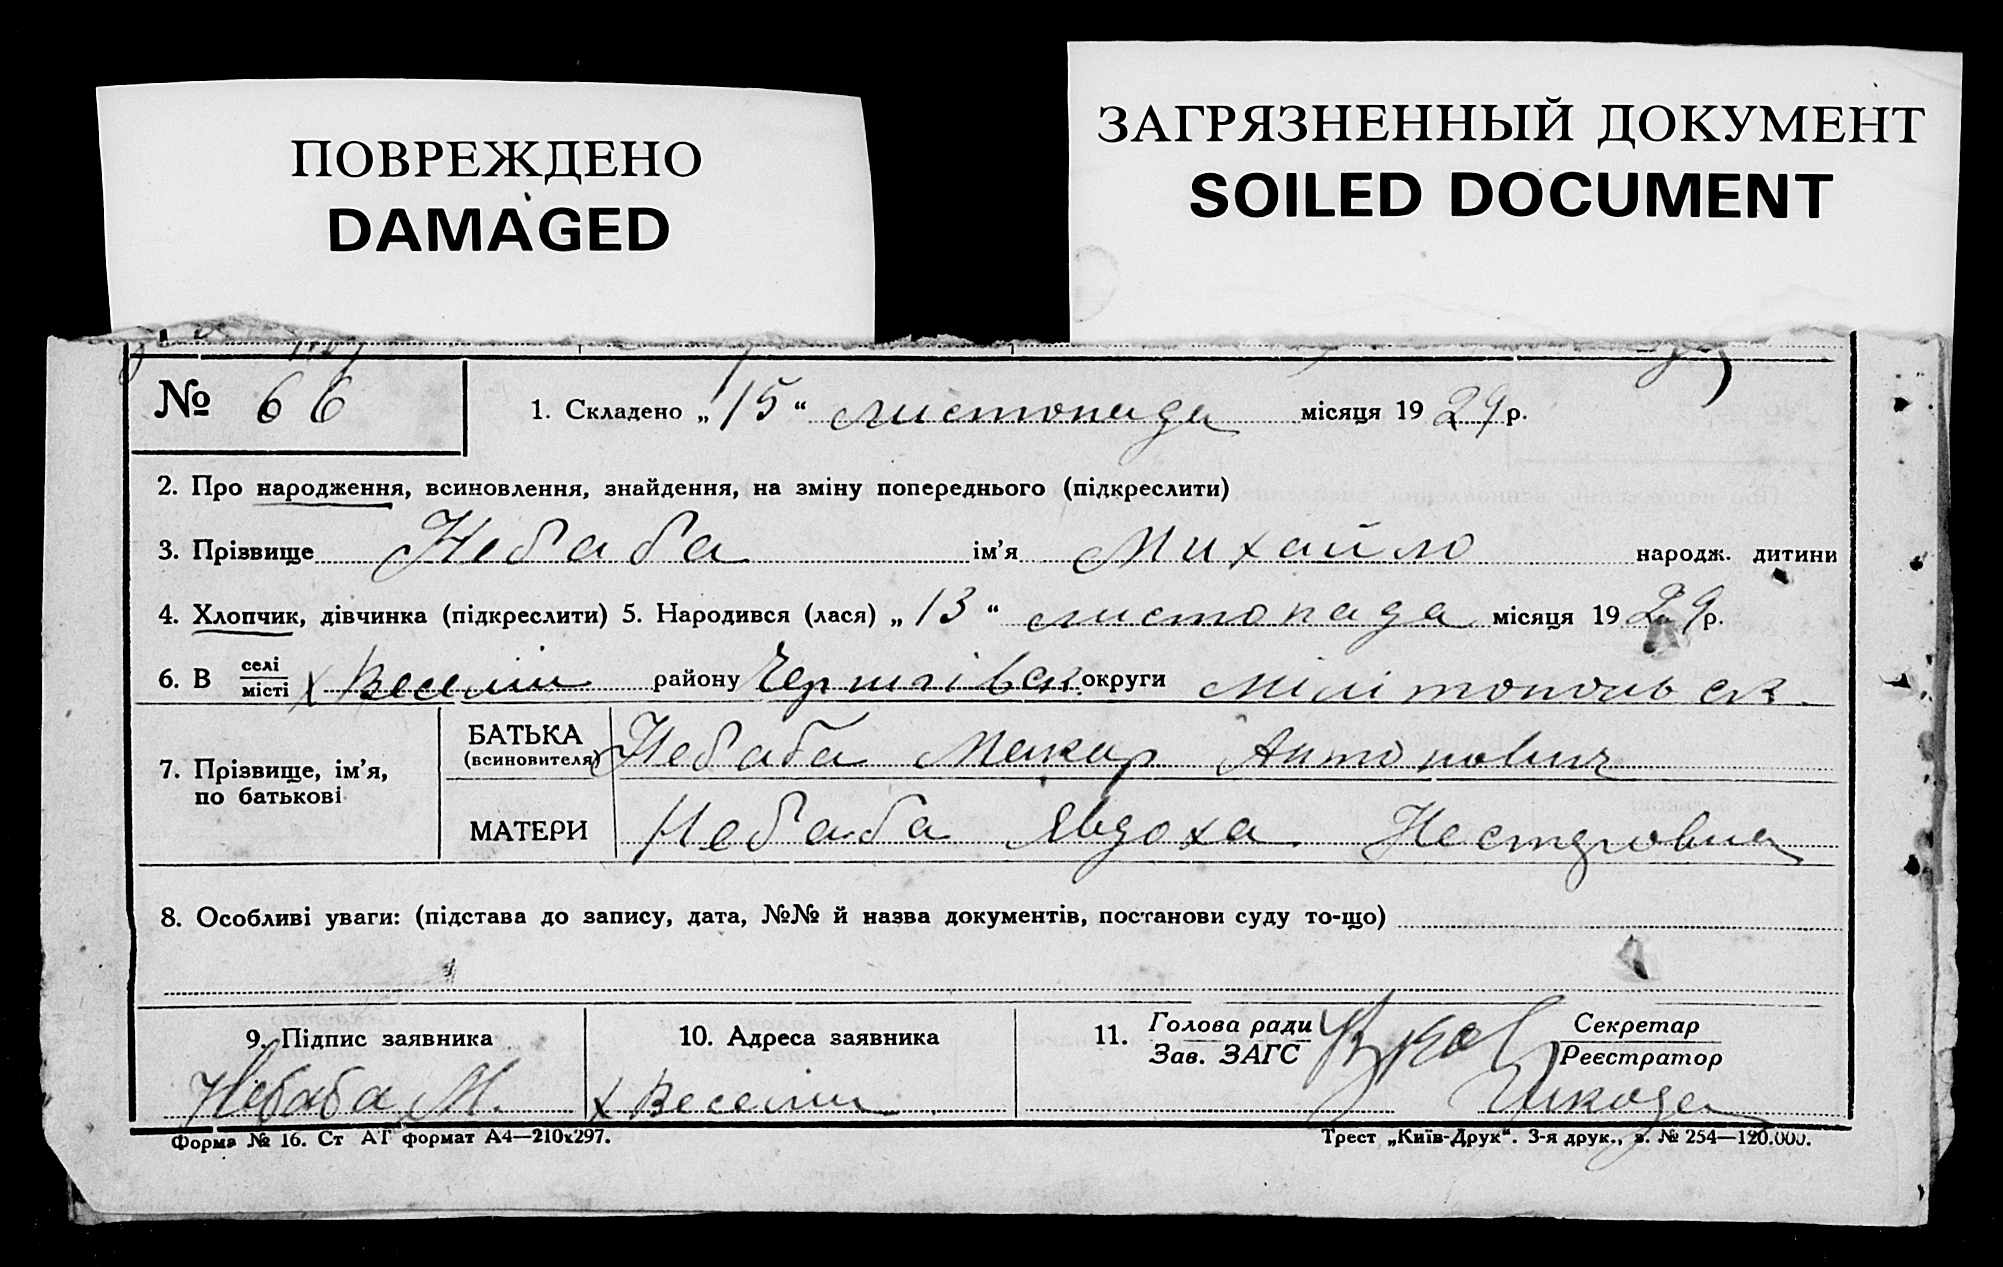 ПОВРЕЖДЕНО
DAMAGED
ЗАГРЯЗНЕННЫЙ ДОКУМЕНТ
SOILED DOCUMENT
№ 66
1. Складено „15“ листопада місяця 1929 р.
2. Про народження, всиновлення, знайдення, на зміну попереднього (підкреслити)
3. Прізвище Небаба ім’я Михайло народж. дитини
4. Хлопчик, дівчинка (підкреслити) 5. Народився (лася) „13“ листопада місяця 1929 р.
6. В селі/місті х Веселім району Чернигівск округи Мілітопольск
7. Прізвище, ім’я, по батькові
БАТЬКА (всиновителя) Небаба Макар Антонович
МАТЕРИ Небаба Явдоха
8. Особливі уваги: (підстава до запису, дата, №№ й назва документів, постанови суду то-що)
9. Підпис заявника
Небаба М.
10. Адреса заявника
х Веселим
11. Голова ради
Зав. ЗАГС
Секретар
Реєстратор
Форма № 16. Ст АТ формат А4—210х297.
Трест „Київ-Друк“. 3-я друк., з. № 254—120.000.